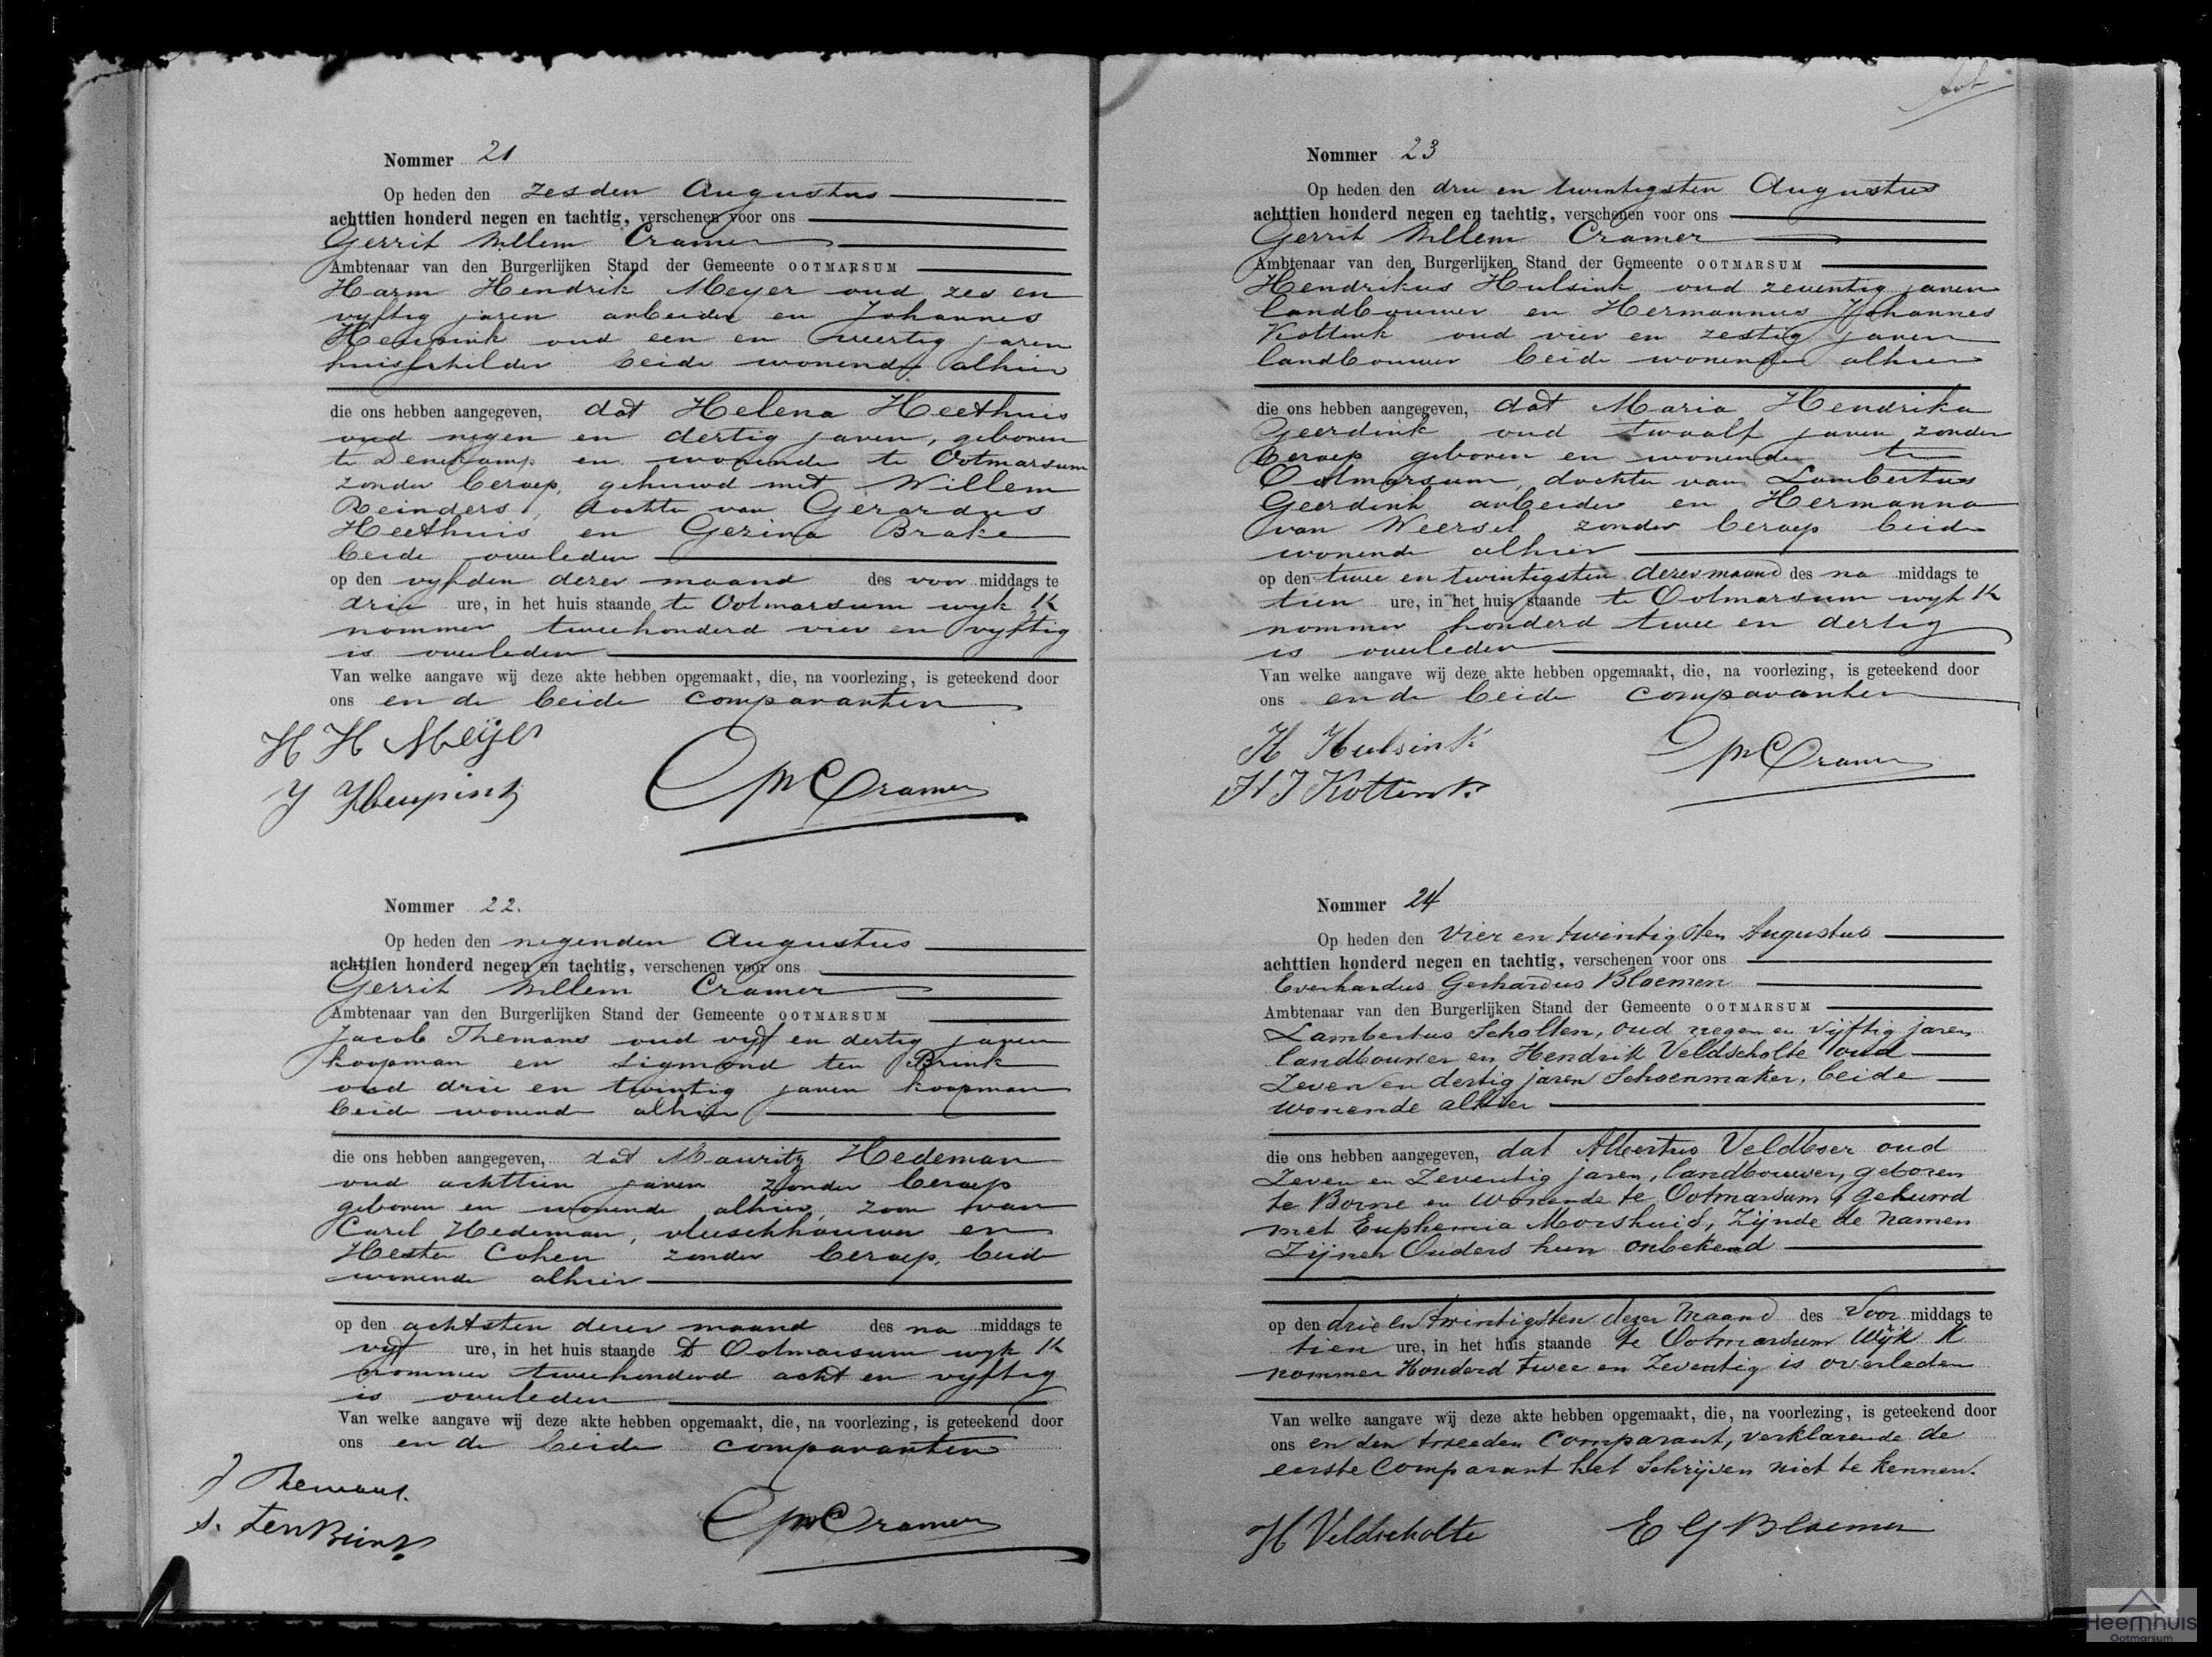 Nommer 21
Op heden den zesden Augustus
achttien honderd negen en tachtig, verschenen voor ons
Gerrit Willem Cramer
Ambtenaar van den Burgerlijken Stand der Gemeente OOTMARSUM
Harm Hendrik Meyer oud zes en
vyftig jaren arbeider en Johannes
Heupink oud een en veertig jaren
huisschilder beide wonende alhier
die ons hebben aangegeven, dat Helena Heethuis
oud negen en dertig jaren, geboren
te Denekamp en wonende te Ootmarsum
zonder beroep, gehuwd met Willem
Reinders, dochter van Gerardus
Heethuis en Gezina Brake
beide overleden
op den vyfden dezer maand des voor middags te
drie ure, in het huis staande te Ootmarsum wyk K
nommer tweehonderd vier en vyftig
is overleden
Van welke aangave wij deze akte hebben opgemaakt, die, na voorlezing, is geteekend door
ons en de beide comparanten
H H Meijer
J Heupink
GWCramer
Nommer 22.
Op heden den negenden Augustus
achttien honderd negen en tachtig, verschenen voor ons
Gerrit Willem Cramer
Ambtenaar van den Burgerlijken Stand der Gemeente OOTMARSUM
Jacob Themans oud vyf en dertig jaren
koopman en Sigmond ten Brink
oud drie en twintig jaren koopman
beide wonende alhier
die ons hebben aangegeven, dat Mauritz Hedeman
oud achttien jaren zonder beroep
geboren en wonende alhier, zoon van
Carel Hedeman, vleeschhouwer en
Hester Cohen zonder beroep, beide
wonende alhier
op den achtsten dezer maand des na middags te
vyf ure, in het huis staande te Ootmarsum wyk K
nommer tweehonderd acht en vyftig
is overleden
Van welke aangave wij deze akte hebben opgemaakt, die, na voorlezing, is geteekend door
ons en de beide comparanten
J Themans.
S. ten Brink
GWCramer
Nommer 23
Op heden den drie en twintigsten Augustus
achttien honderd negen en tachtig, verschenen voor ons
Gerrit Willem Cramer
Ambtenaar van den Burgerlijken Stand der Gemeente OOTMARSUM
Hendrikus Hulsink oud zeventig jaren
landbouwer en Hermannus Johannes
Kottink oud vier en zestig jaren
landbouwer beide wonende alhier
die ons hebben aangegeven, dat Maria Hendrika
Geerdink oud twaalf jaren zonder
beroep geboren en wonende te
Ootmarsum, dochter van Lambertus
Geerdink arbeider en Hermanna
van Weersel zonder beroep beide
wonende alhier
op den twee en twintigsten dezer maand des na middags te
tien ure, in het huis staande te Ootmarsum wyk K
nommer honderd twee en dertig
is overleden
Van welke aangave wij deze akte hebben opgemaakt, die, na voorlezing, is geteekend door
ons en de beide comparanten
H Hulsink
H J Kottink
GWCramer
Nommer 24
Op heden den Vier en twintigsten Augustus
achttien honderd negen en tachtig, verschenen voor ons
Everhardus Gerhardus Bloemen
Ambtenaar van den Burgerlijken Stand der Gemeente OOTMARSUM
Lambertus Scholten, oud negen en vijftig jaren
landbouwer en Hendrik Veldscholte oud
Zeven en dertig jaren Schoenmaker, beide
wonende alhier
die ons hebben aangegeven, dat Albertus Veldboer oud
Zeven en Zeventig jaren, landbouwer, geboren
te Borne en wonende te Ootmarsum, gehuwd
met Euphemia Morshuis, Zijnde de namen
Zijner Ouders hun onbekend
op den drie en twintigsten dezer maand des Voor middags te
tien ure, in het huis staande te Ootmarsum Wijk K
nommer Honderd twee en Zeventig is overleden
Van welke aangave wij deze akte hebben opgemaakt, die, na voorlezing, is geteekend door
ons en den tweeden Comparant, verklarende de
eerste Comparant het Schrijven niet te kennen.
H Veldscholte
E G Bloemen
Heemhuis
Ootmarsum